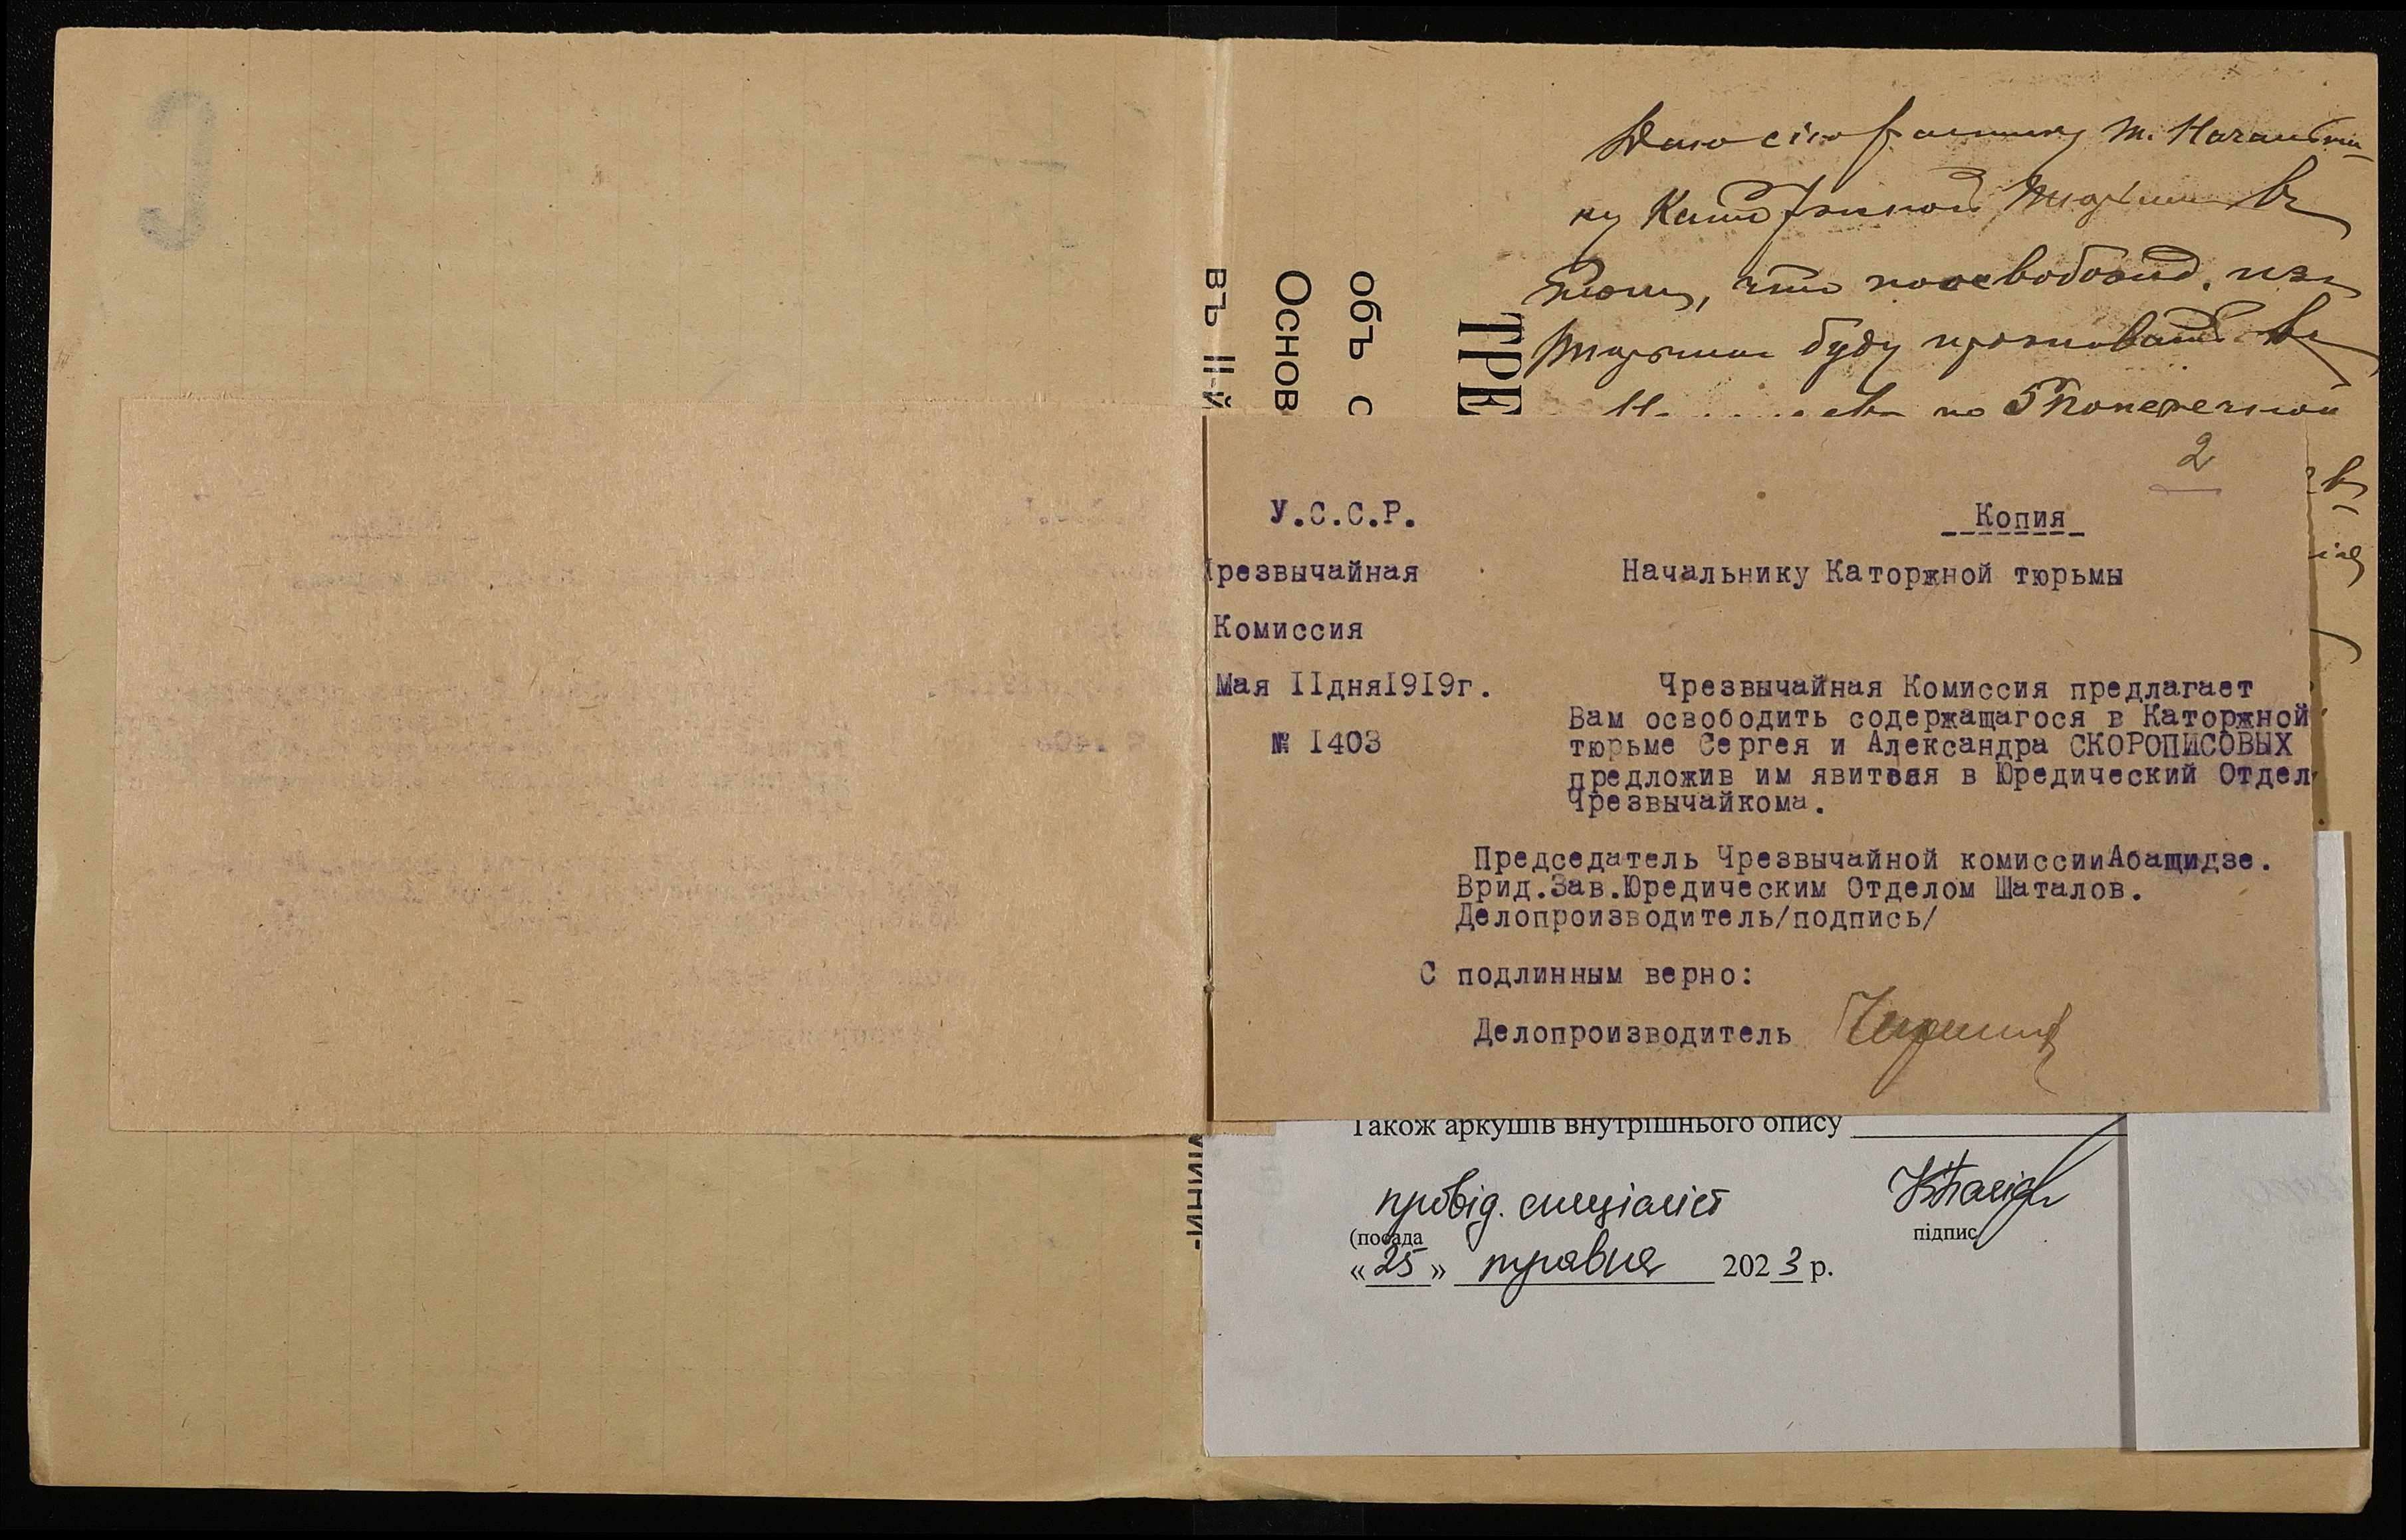 Дано сію расписку т. Начальни-
ку Каторжной тюрьмы въ
томъ, что по освобожд. изъ
тюрьмы буду проживать въ
по 5 Поперечной
ТРЕ
объ с
Основ
въ II-й
2
У.С.С.Р.
Копия
Чрезвычайная
Начальнику Каторжной тюрьмы
Комиссия
Мая IIдняI9I9г.
№ I403
Чрезвычайная Комиссия предлагает
Вам освободить содержащагося в Каторжной
тюрьме Сергея и Александра СКОРОПИСОВЫХ
предложив им явится в Юредический Отдел
Чрезвычайкома.
Председатель Чрезвычайной комиссииАбащидзе.
Врид.Зав.Юредическим Отделом Шаталов.
Делопроизводитель/подпись/
С подлинным верно:
Делопроизводитель
Також аркушів внутрішнього опису
провід. спеціаліст
(посада
підпис
«25» травня 2023 р.